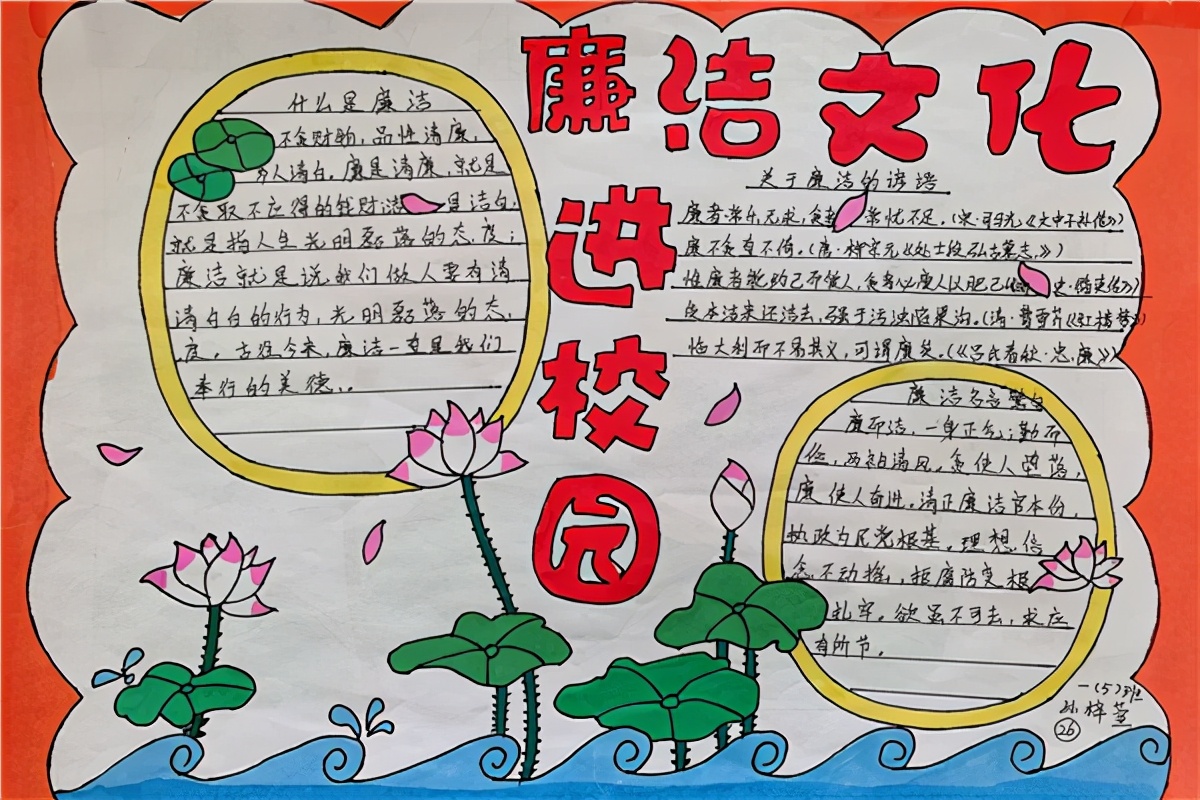 廉洁文化
进校园
什么是廉洁
不贪财物，品性清廉，
为人清白。廉是清廉，就是
不贪取不应得的钱财；洁是洁白，
就是指人生光明磊落的态度；
廉洁就是说我们做人要有清
清白白的行为，光明磊落的态
度。古往今来，廉洁一直是我们
奉行的美德。
关于廉洁的谚语
廉者常乐无求，贪者常忧不足。（《文中子
廉不贪直不倚。（唐·
惟廉者能约己而爱人，贪者必废人以肥己
质本洁来还洁去，强于污淖陷渠沟。（清·曹雪芹《红楼梦》）
临大利而不易其义，可谓廉矣。（《吕氏春秋·忠廉》）
廉洁名言警句
廉而洁，一身正气；勤而
俭，两袖清风。贪使人堕落，
廉使人奋进。清正廉洁官本份，
执政为民党根基。理想信
念不动摇，拒腐防变根
扎牢。欲虽不可去，求应
有所节。
一（5）班
孙梓萱
26